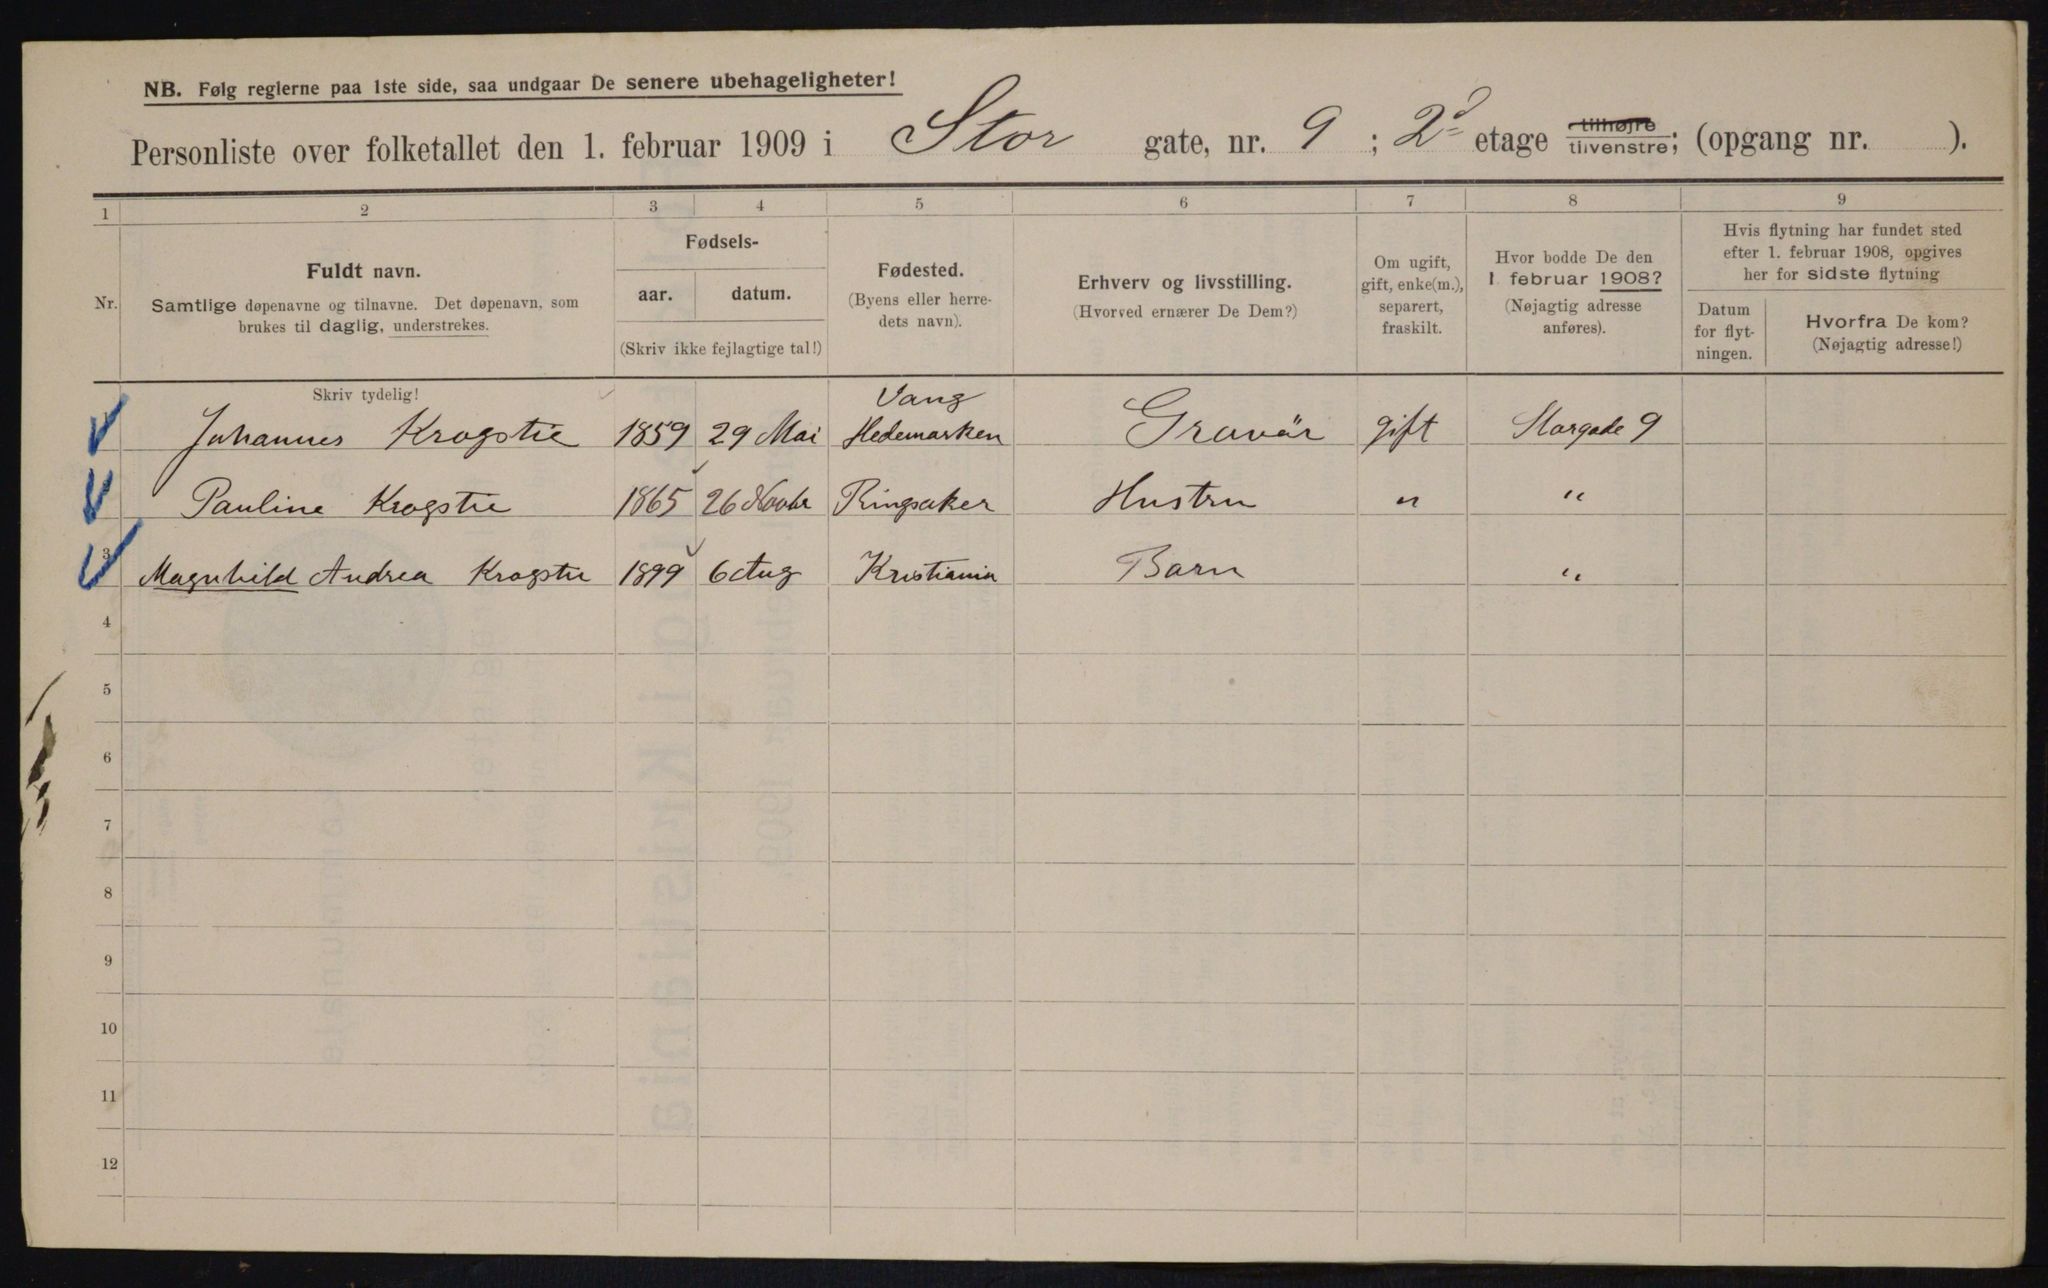 NB. Følg reglerne paa 1ste side, saa undgaar De senere ubehageligheter!
Personliste over folketallet den 1. februar 1909 i Stor gate, nr. 9 ; 2d etage tilhøjre tilvenstre; (opgang nr. ).
1 2 3 4 5 6 7 8 9
Nr.
Fuldt navn.
Samtlige døpenavne og tilnavne. Det døpenavn, som
brukes til daglig, understrekes.
Fødsels-
aar. datum.
(Skriv ikke fejlagtige tal!)
Fødested.
(Byens eller herre-
dets navn).
Erhverv og livsstilling.
(Hvorved ernærer De Dem?)
Om ugift,
gift, enke(m.),
separert,
fraskilt.
Hvor bodde De den
1. februar 1908?
(Nøjagtig adresse
anføres).
Hvis flytning har fundet sted
efter 1. februar 1908, opgives
her for sidste flytning
Datum
for flyt-
ningen.
Hvorfra De kom?
(Nøjagtig adresse!)
Skriv tydelig!
Johannes Krogstie 1859 29 Mai Vang Hedemarken Gravör gift Storgade 9
Pauline Krogstie 1865 26 Novbr Ringsaker Hustru " "
3 Magnhild Andrea Krogstie 1899 6 Aug Kristiania Barn "
4
5
6
7
8
9
10
11
12